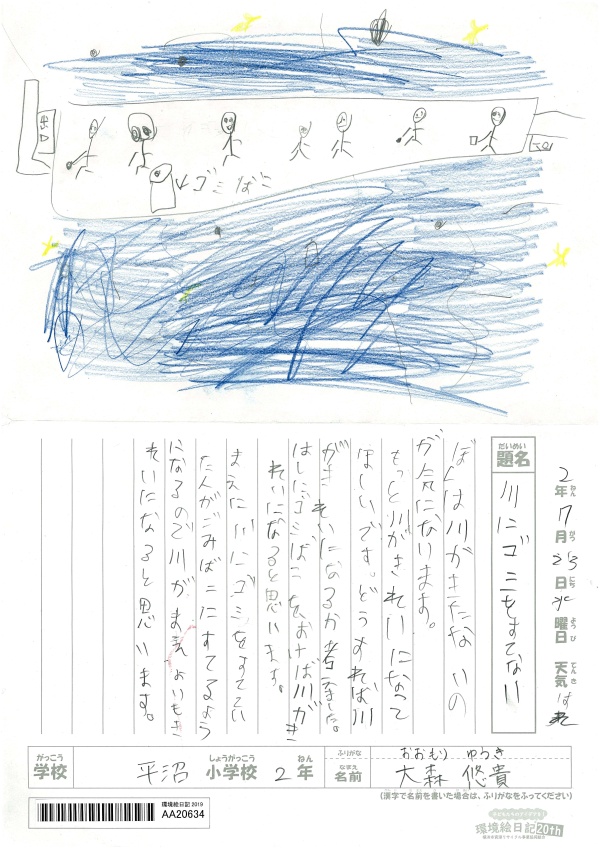 ゴミばこ
2年7月23日火曜日 天気はれ
ねん がつ にち ようび てんき
だいめい
題名
川にゴミをすてない
ぼくは川がきたないの
が気になります。
もっと川がきれいになって
ほしいです。どうすれば川
がきれいになるか考えました。
はしにゴミばこをおけば川がき
れいになると思います。
まえに川にゴミをすててい
た人がごみばこにすてるよう
になるので川がまえよりもき
れいになると思います。
がっこう しょうがっこう ねん ふりがな おおもり ゆうき
学校 平沼 小学校 2年 なまえ 名前 大森 悠貴
(漢字で名前を書いた場合は、ふりがなをふってください)
環境絵日記 2019
AA20634
環境絵日記20th